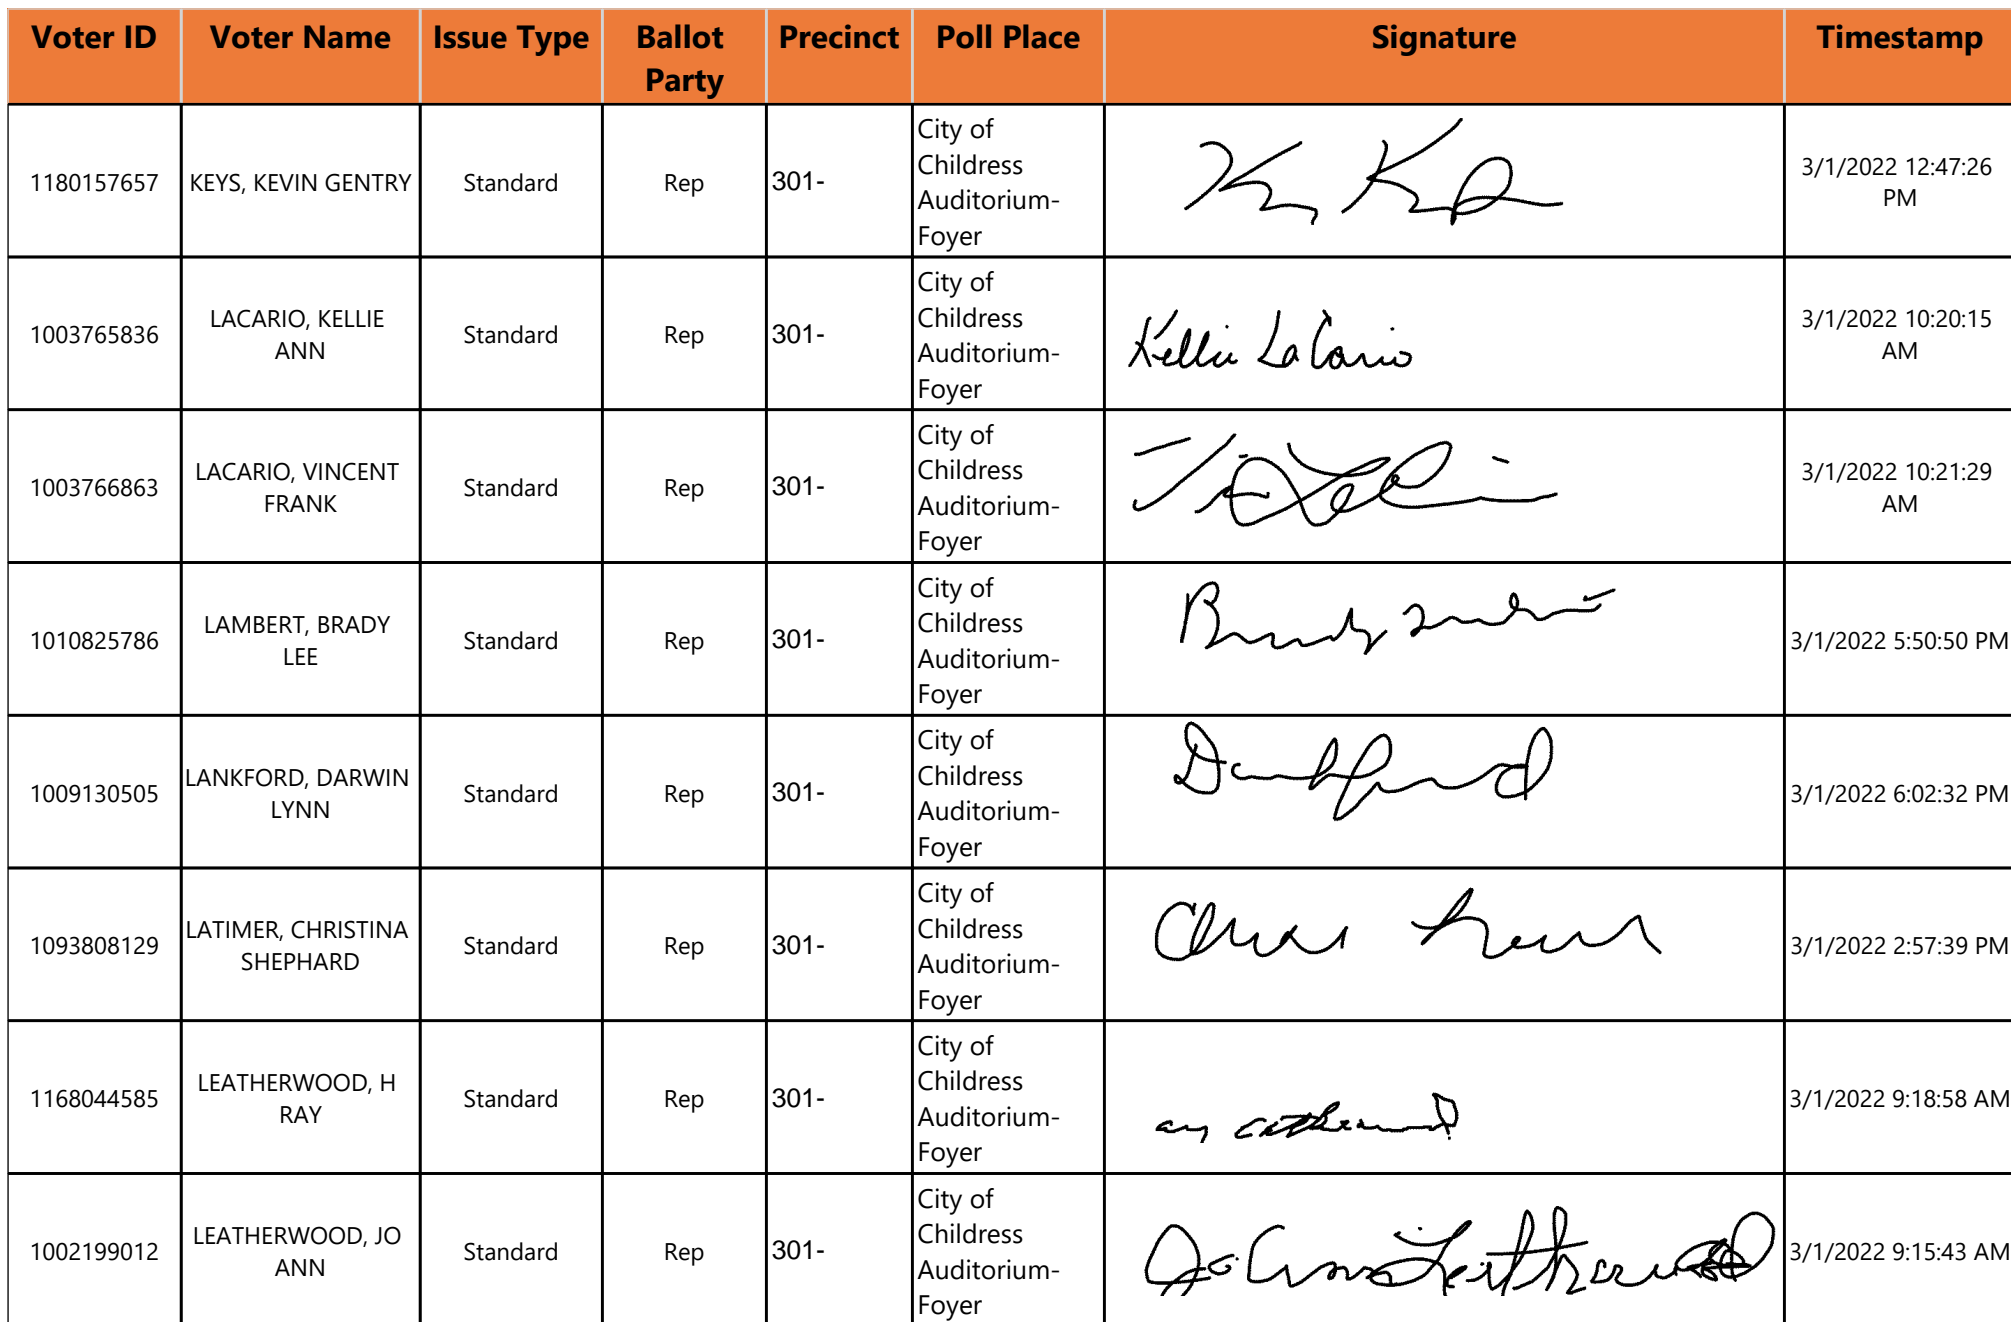 Voter ID Voter Name Issue Type Ballot Party Precinct Poll Place Signature Timestamp
1180157657 KEYS, KEVIN GENTRY Standard Rep 301- City of Childress Auditorium-Foyer 3/1/2022 12:47:26 PM
1003765836 LACARIO, KELLIE ANN Standard Rep 301- City of Childress Auditorium-Foyer Kellie LaCario 3/1/2022 10:20:15 AM
1003766863 LACARIO, VINCENT FRANK Standard Rep 301- City of Childress Auditorium-Foyer 3/1/2022 10:21:29 AM
1010825786 LAMBERT, BRADY LEE Standard Rep 301- City of Childress Auditorium-Foyer 3/1/2022 5:50:50 PM
1009130505 LANKFORD, DARWIN LYNN Standard Rep 301- City of Childress Auditorium-Foyer 3/1/2022 6:02:32 PM
1093808129 LATIMER, CHRISTINA SHEPHARD Standard Rep 301- City of Childress Auditorium-Foyer 3/1/2022 2:57:39 PM
1168044585 LEATHERWOOD, H RAY Standard Rep 301- City of Childress Auditorium-Foyer 3/1/2022 9:18:58 AM
1002199012 LEATHERWOOD, JO ANN Standard Rep 301- City of Childress Auditorium-Foyer Jo Ann Leatherwood 3/1/2022 9:15:43 AM